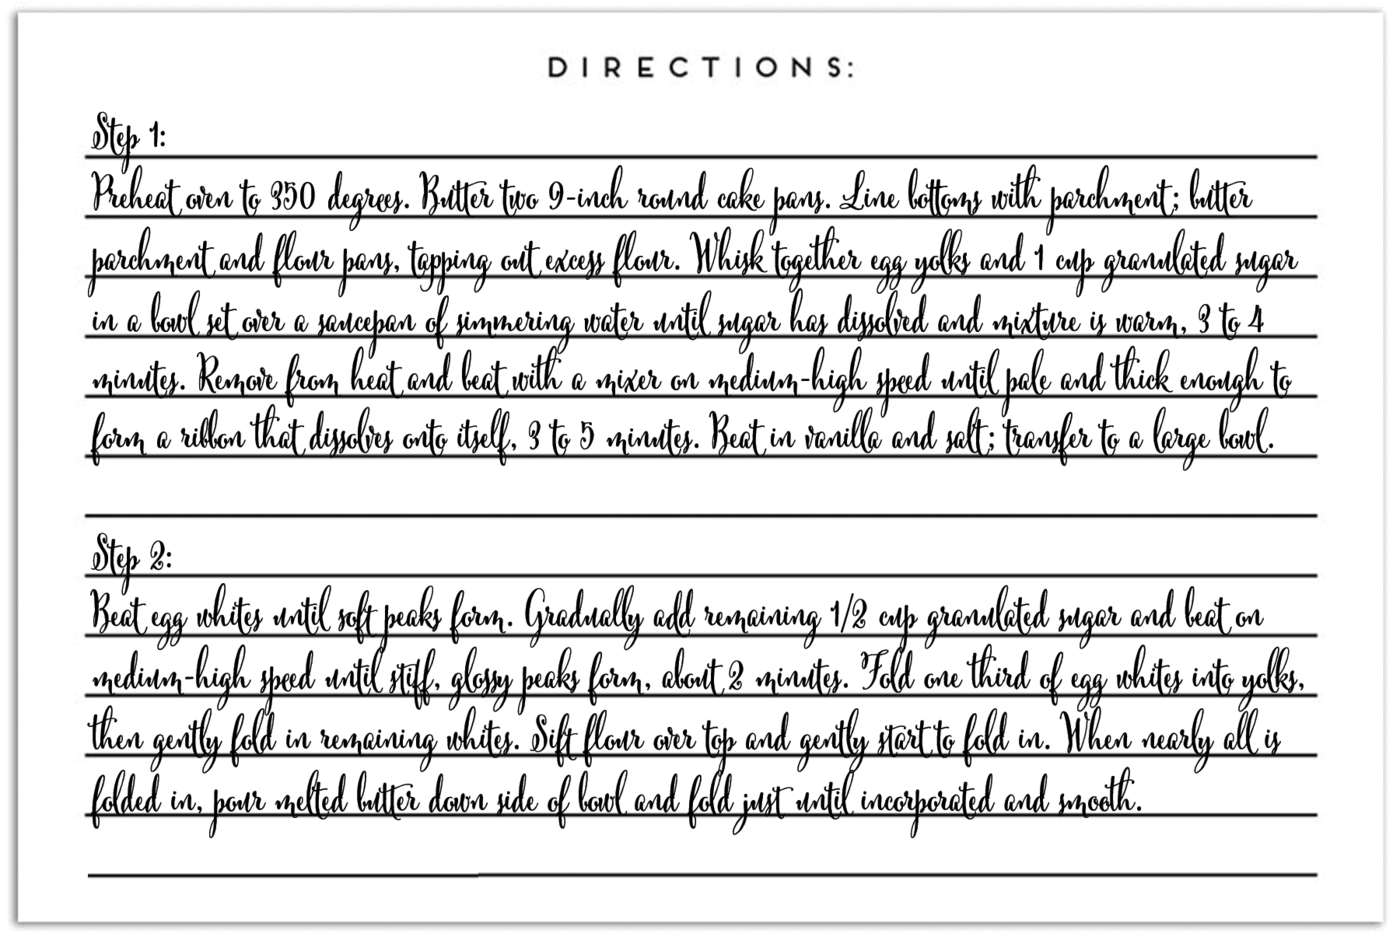 DIRECTIONS:
Step 1:
Preheat oven to 350 degrees. Butter two 9-inch round cake pans. Line bottoms with parchment; butter
parchment and flour pans, tapping out excess flour. Whisk together egg yolks and 1 cup granulated sugar
in a bowl set over a saucepan of simmering water until sugar has dissolved and mixture is warm, 3 to 4
minutes. Remove from heat and beat with a mixer on medium-high speed until pale and thick enough to
form a ribbon that dissolves onto itself, 3 to 5 minutes. Beat in vanilla and salt; transfer to a large bowl.
Step 2:
Beat egg whites until soft peaks form. Gradually add remaining 1/2 cup granulated sugar and beat on
medium-high speed until stiff, glossy peaks form, about 2 minutes. Fold one third of egg whites into yolks,
then gently fold in remaining whites. Sift flour over top and gently start to fold in. When nearly all is
folded in, pour melted butter down side of bowl and fold just until incorporated and smooth.